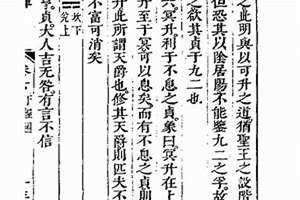 之此明與以可升之道猶聖王之設階
但恐其以陰居陽不能鍳九二之孚故
欲其貞于九二也
六冥升利于不息之貞象曰冥升在上
升至于冥可以息矣而有不息之貞則
升此所謂天爵也修其天爵則匹夫不
不富可消矣
坎下
兌上
亨貞大人吉无咎有言不信